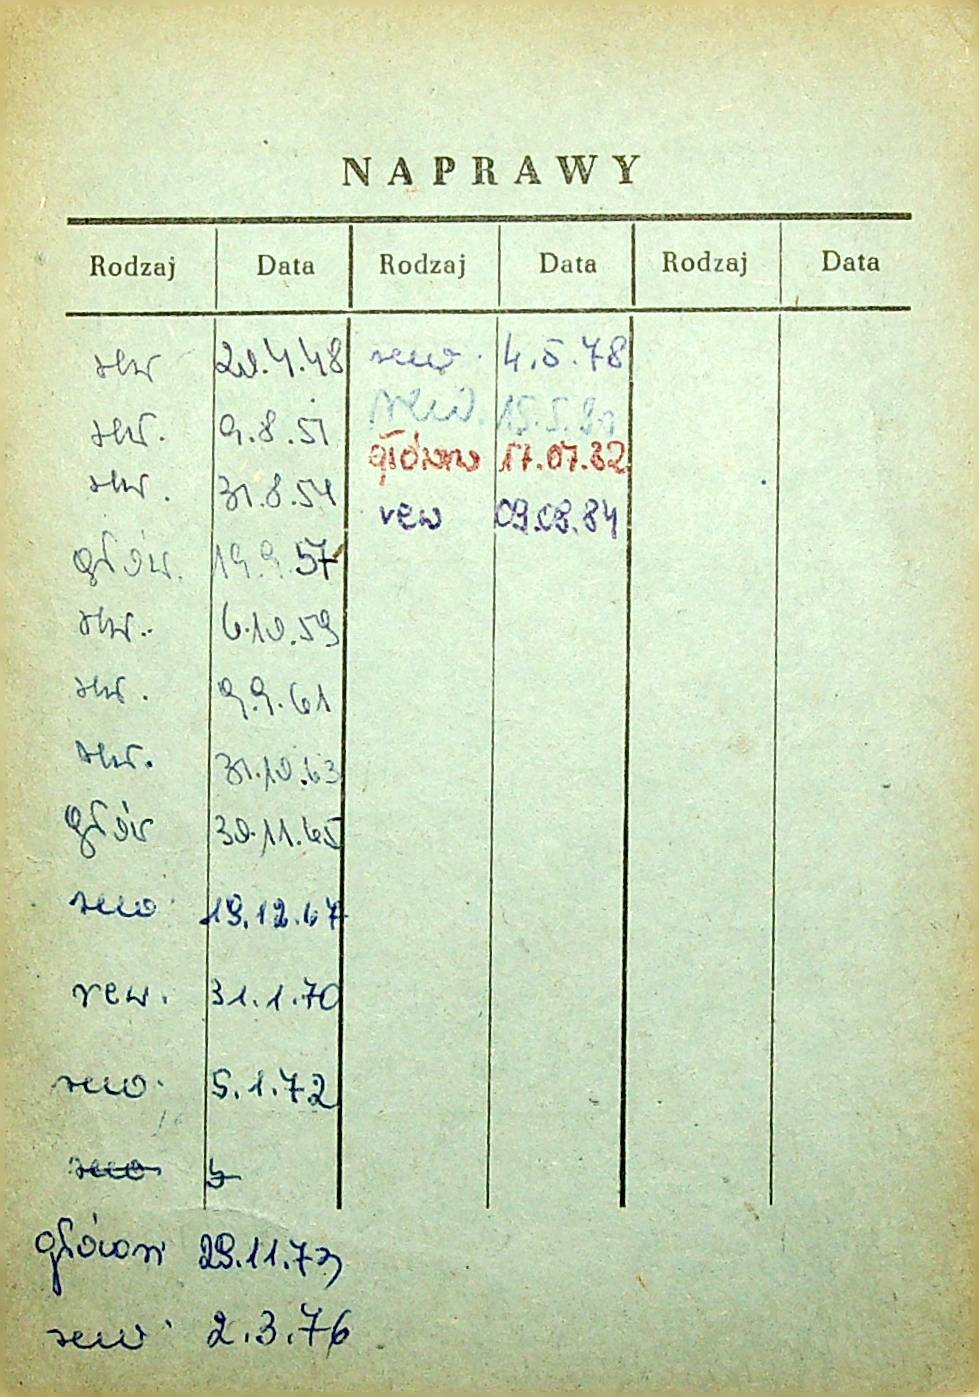 NAPRAWY
Rodzaj Data Rodzaj Data Rodzaj Data
rew 20.4.48
rew. 9.8.51
rew. 31.8.54
głów. 19.9.57
rew. 6.10.59
rew. 9.9.61
rew. 31.10.63
głów 30.11.65
rew. 19.12.67
rew. 31.1.70
rew. 5.1.72
rew
główn 29.11.73
rew. 2.3.76
rew. 4.5.78
rew. 15.5.80
główna 17.07.82
rew 09.08.84